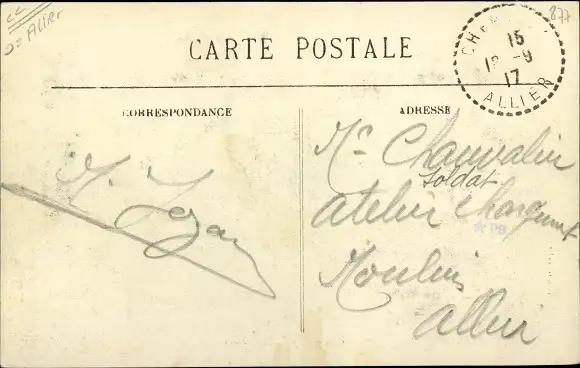 CC
03 Allier
877
CARTE POSTALE
15
18 -9
17
ALLIER
CORRESPONDANCE
ADRESSE
Mr Chauvalin
Soldat
atelier chargement
PB
Moulins
Allier